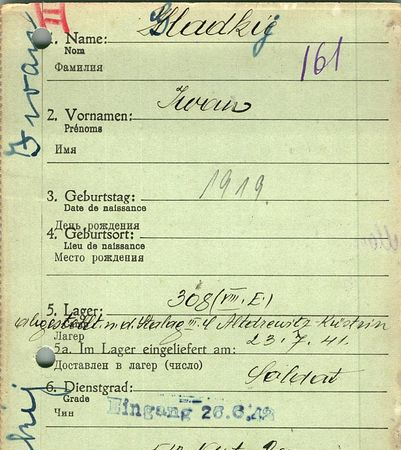 II
1. Name: Gladkij
Nom
Фамилия
161
Iwan
2. Vornamen: Iwan
Prénoms
Имя
3. Geburtstag: 1919
Date de naissance
День рождения
4. Geburtsort:
Lieu de naissance
Место рождения
5. Lager: 308 (VIII. E.)
Stalag III. C Altdrewitz Küstrin
Лагер
5a. Im Lager eingeliefert am: 23. 7. 41.
Доставлен в лагер (число)
6. Dienstgrad: Soldat
Grade
Чин
Eingang 26.6.42